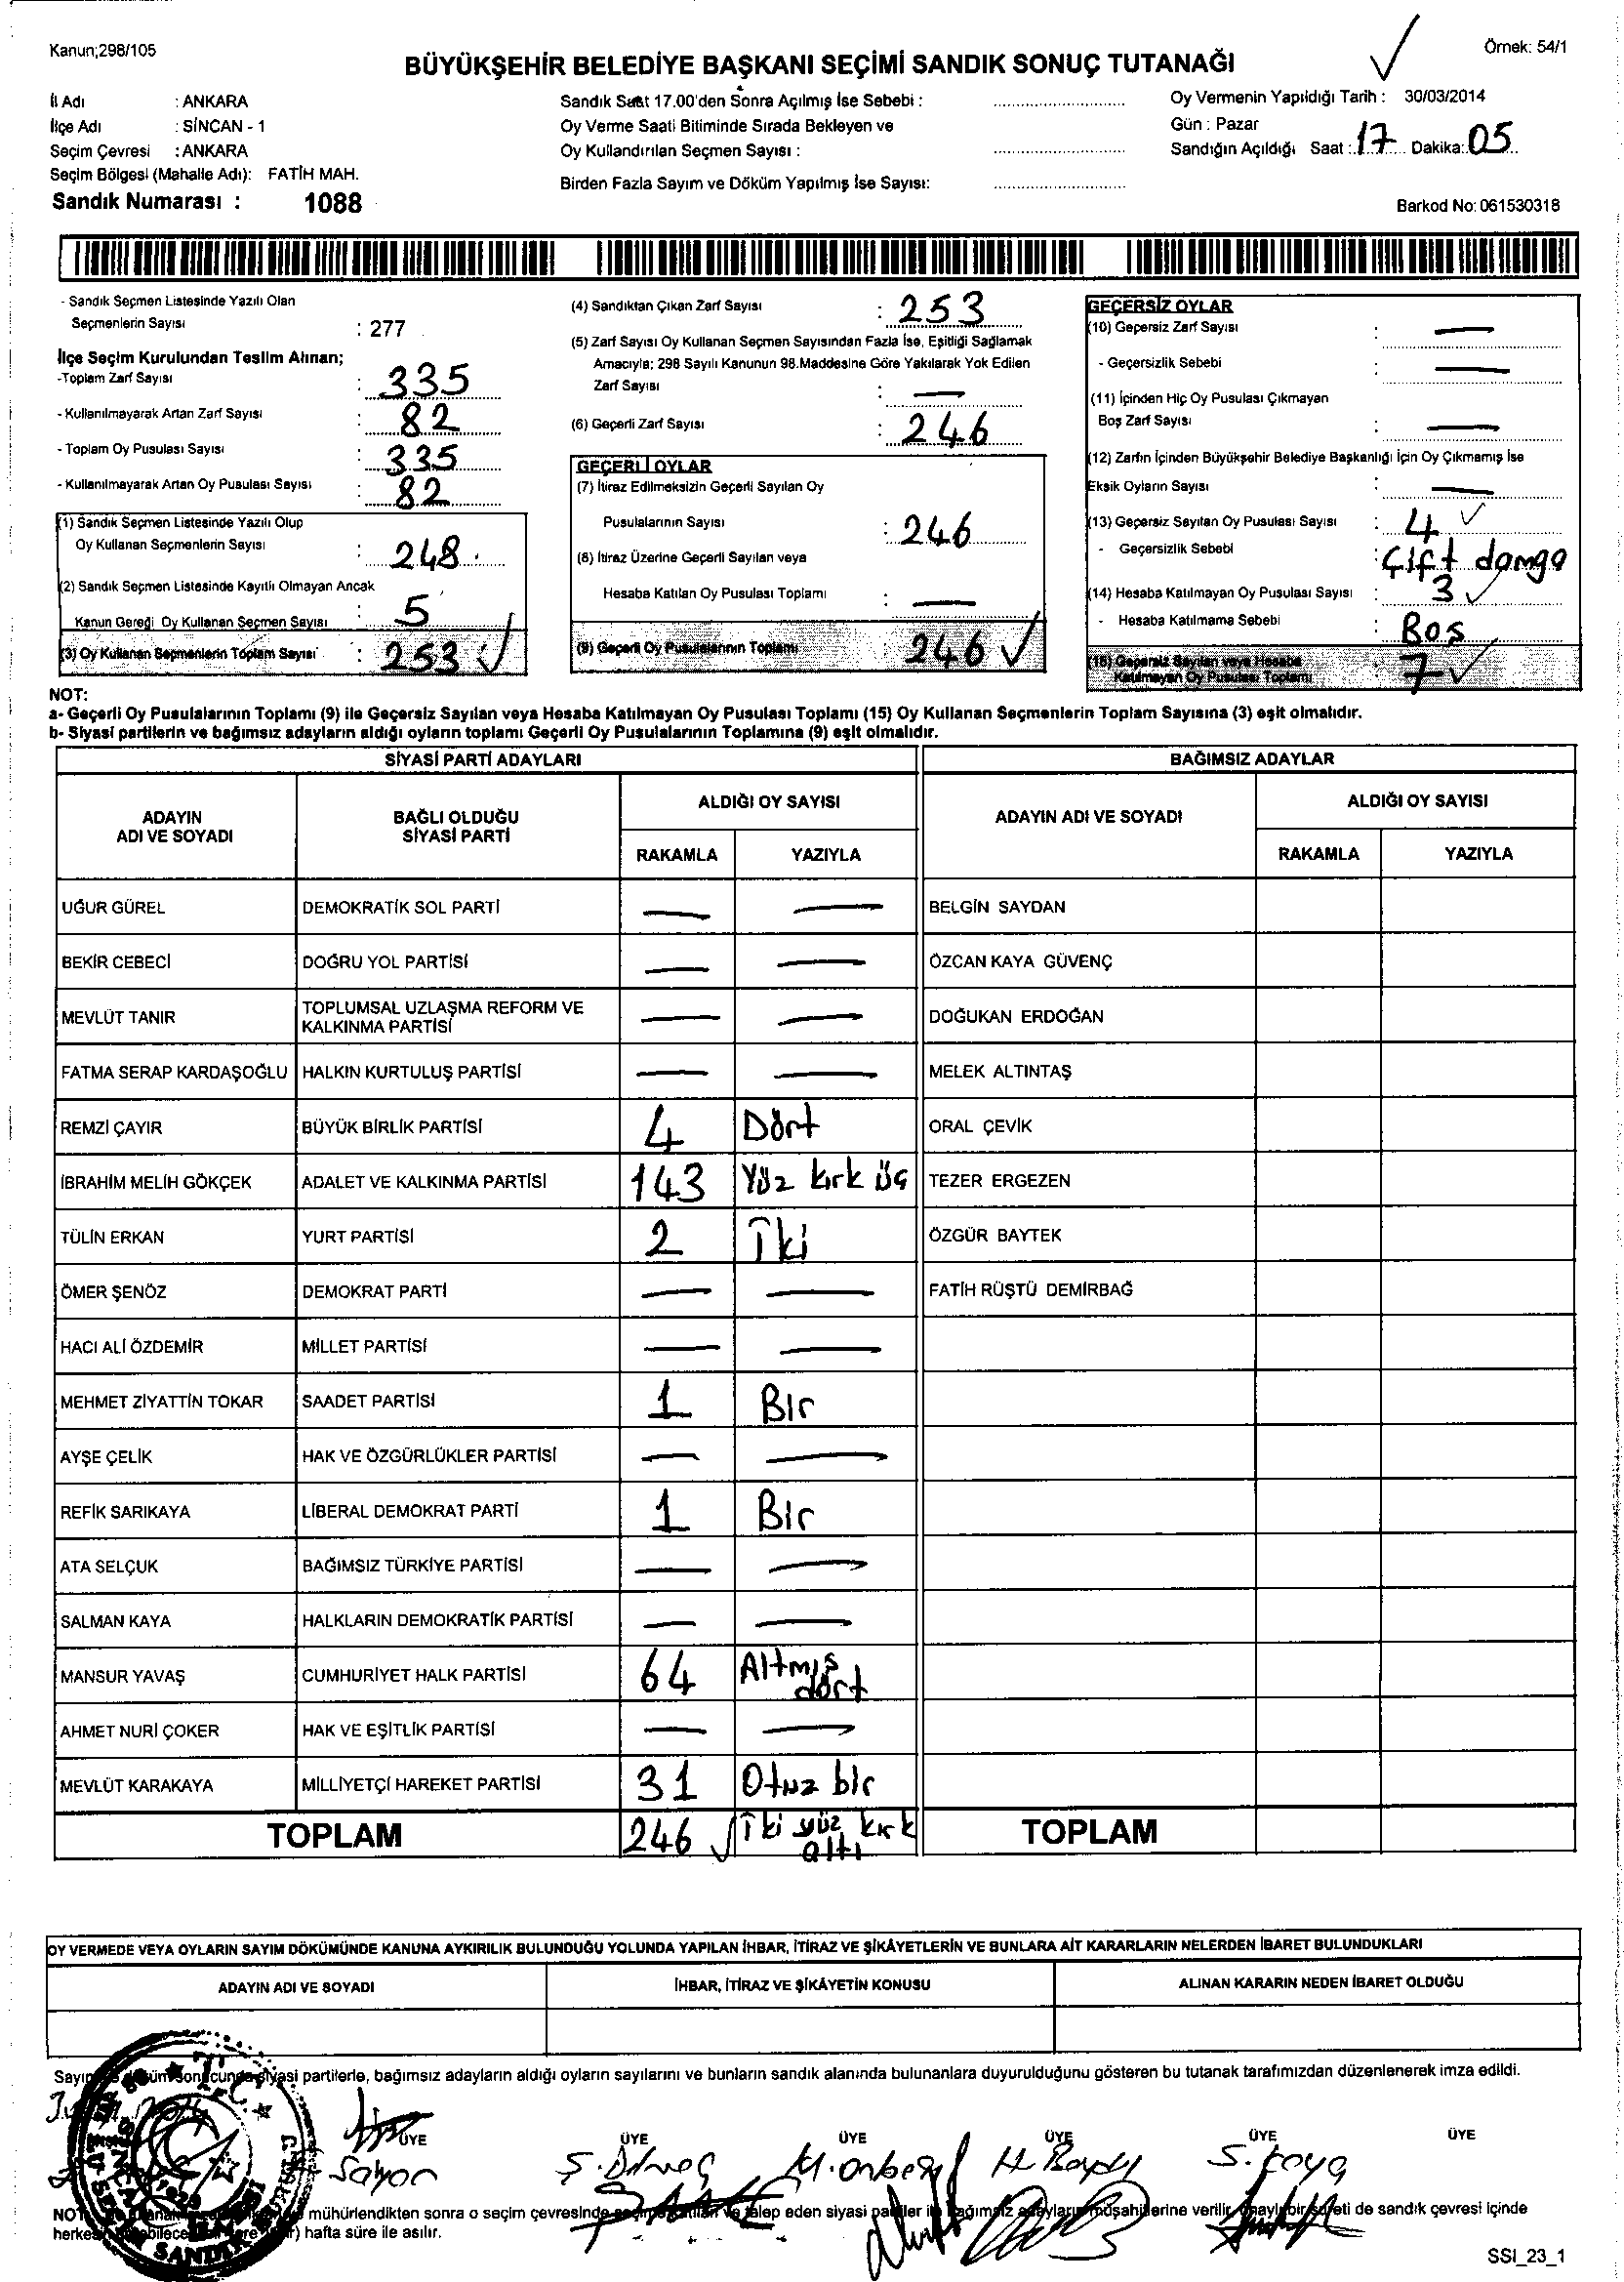 Kanun;298/105
Örnek: 54/1
BÜYÜKŞEHİR BELEDİYE BAŞKANI SEÇİMİ SANDIK SONUÇ TUTANAĞI
İl Adı : ANKARA
İlçe Adı : SİNCAN - 1
Seçim Çevresi : ANKARA
Seçim Bölgesi (Mahalle Adı): FATİH MAH.
Sandık Numarası : 1088
Sandık Saat 17.00'den Sonra Açılmış İse Sebebi :
Oy Verme Saati Bitiminde Sırada Bekleyen ve
Oy Kullandırılan Seçmen Sayısı :
Birden Fazla Sayım ve Döküm Yapılmış İse Sayısı:
Oy Vermenin Yapıldığı Tarih : 30/03/2014
Gün : Pazar
Sandığın Açıldığı Saat : 17 Dakika: 05
Barkod No: 061530318
- Sandık Seçmen Listesinde Yazılı Olan
Seçmenlerin Sayısı : 277
İlçe Seçim Kurulundan Teslim Alınan;
-Toplam Zarf Sayısı : 335
- Kullanılmayarak Artan Zarf Sayısı : 82
- Toplam Oy Pusulası Sayısı : 335
- Kullanılmayarak Artan Oy Pusulası Sayısı : 82
(1) Sandık Seçmen Listesinde Yazılı Olup
Oy Kullanan Seçmenlerin Sayısı : 248
(2) Sandık Seçmen Listesinde Kayıtlı Olmayan Ancak
Kanun Gereği Oy Kullanan Seçmen Sayısı : 5
(3) Oy Kullanan Seçmenlerin Toplam Sayısı : 253
(4) Sandıktan Çıkan Zarf Sayısı : 253
(5) Zarf Sayısı Oy Kullanan Seçmen Sayısından Fazla İse, Eşitliği Sağlamak
Amacıyla; 298 Sayılı Kanunun 98.Maddesine Göre Yakılarak Yok Edilen
Zarf Sayısı : —
(6) Geçerli Zarf Sayısı : 246
GEÇERLİ OYLAR
(7) İtiraz Edilmeksizin Geçerli Sayılan Oy
Pusulalarının Sayısı : 246
(8) İtiraz Üzerine Geçerli Sayılan veya
Hesaba Katılan Oy Pusulası Toplamı : —
(9) Geçerli Oy Pusulalarının Toplamı 246
GEÇERSİZ OYLAR
(10) Geçersiz Zarf Sayısı : —
- Geçersizlik Sebebi : —
(11) İçinden Hiç Oy Pusulası Çıkmayan
Boş Zarf Sayısı : —
(12) Zarfın İçinden Büyükşehir Belediye Başkanlığı İçin Oy Çıkmamış İse
Eksik Oyların Sayısı : —
(13) Geçersiz Sayılan Oy Pusulası Sayısı : 4
- Geçersizlik Sebebi : Çift damga
(14) Hesaba Katılmayan Oy Pusulası Sayısı : 3
- Hesaba Katılmama Sebebi : Boş
(15) Geçersiz Sayılan veya Hesaba
Katılmayan Oy Pusulası Toplamı : 7
NOT:
a- Geçerli Oy Pusulalarının Toplamı (9) ile Geçersiz Sayılan veya Hesaba Katılmayan Oy Pusulası Toplamı (15) Oy Kullanan Seçmenlerin Toplam Sayısına (3) eşit olmalıdır.
b- Siyasi partilerin ve bağımsız adayların aldığı oyların toplamı Geçerli Oy Pusulalarının Toplamına (9) eşit olmalıdır.
SİYASİ PARTİ ADAYLARI
ADAYIN ADI VE SOYADI BAĞLI OLDUĞU SİYASİ PARTİ ALDIĞI OY SAYISI
RAKAMLA YAZIYLA
UĞUR GÜREL DEMOKRATİK SOL PARTİ — —
BEKİR CEBECİ DOĞRU YOL PARTİSİ — —
MEVLÜT TANIR TOPLUMSAL UZLAŞMA REFORM VE KALKINMA PARTİSİ — —
FATMA SERAP KARDAŞOĞLU HALKIN KURTULUŞ PARTİSİ — —
REMZİ ÇAYIR BÜYÜK BİRLİK PARTİSİ 4 Dört
İBRAHİM MELİH GÖKÇEK ADALET VE KALKINMA PARTİSİ 143 Yüz kırk üç
TÜLİN ERKAN YURT PARTİSİ 2 İki
ÖMER ŞENÖZ DEMOKRAT PARTİ — —
HACI ALİ ÖZDEMİR MİLLET PARTİSİ — —
MEHMET ZİYATTİN TOKAR SAADET PARTİSİ 1 Bir
AYŞE ÇELİK HAK VE ÖZGÜRLÜKLER PARTİSİ — —
REFİK SARIKAYA LİBERAL DEMOKRAT PARTİ 1 Bir
ATA SELÇUK BAĞIMSIZ TÜRKİYE PARTİSİ — —
SALMAN KAYA HALKLARIN DEMOKRATİK PARTİSİ — —
MANSUR YAVAŞ CUMHURİYET HALK PARTİSİ 64 Altmış dört
AHMET NURİ ÇOKER HAK VE EŞİTLİK PARTİSİ — —
MEVLÜT KARAKAYA MİLLİYETÇİ HAREKET PARTİSİ 31 Otuz bir
TOPLAM 246 İki yüz kırk altı
BAĞIMSIZ ADAYLAR
ADAYIN ADI VE SOYADI ALDIĞI OY SAYISI
RAKAMLA YAZIYLA
BELGİN SAYDAN
ÖZCAN KAYA GÜVENÇ
DOĞUKAN ERDOĞAN
MELEK ALTINTAŞ
ORAL ÇEVİK
TEZER ERGEZEN
ÖZGÜR BAYTEK
FATİH RÜŞTÜ DEMİRBAĞ
TOPLAM
OY VERMEDE VEYA OYLARIN SAYIM DÖKÜMÜNDE KANUNA AYKIRILIK BULUNDUĞU YOLUNDA YAPILAN İHBAR, İTİRAZ VE ŞİKÂYETLERİN VE BUNLARA AİT KARARLARIN NELERDEN İBARET BULUNDUKLARI
ADAYIN ADI VE SOYADI İHBAR, İTİRAZ VE ŞİKÂYETİN KONUSU ALINAN KARARIN NEDEN İBARET OLDUĞU
siyasi partilerle, bağımsız adayların aldığı oyların sayılarını ve bunların sandık alanında bulunanlara duyurulduğunu gösteren bu tutanak tarafımızdan düzenlenerek imza edildi.
ÜYE ÜYE ÜYE ÜYE ÜYE ÜYE
mühürlendikten sonra o seçim çevresinde talep eden siyasi partiler müşahitlerine verilir, sureti de sandık çevresi içinde
hafta süre ile asılır.
SANDIK
SSI_23_1